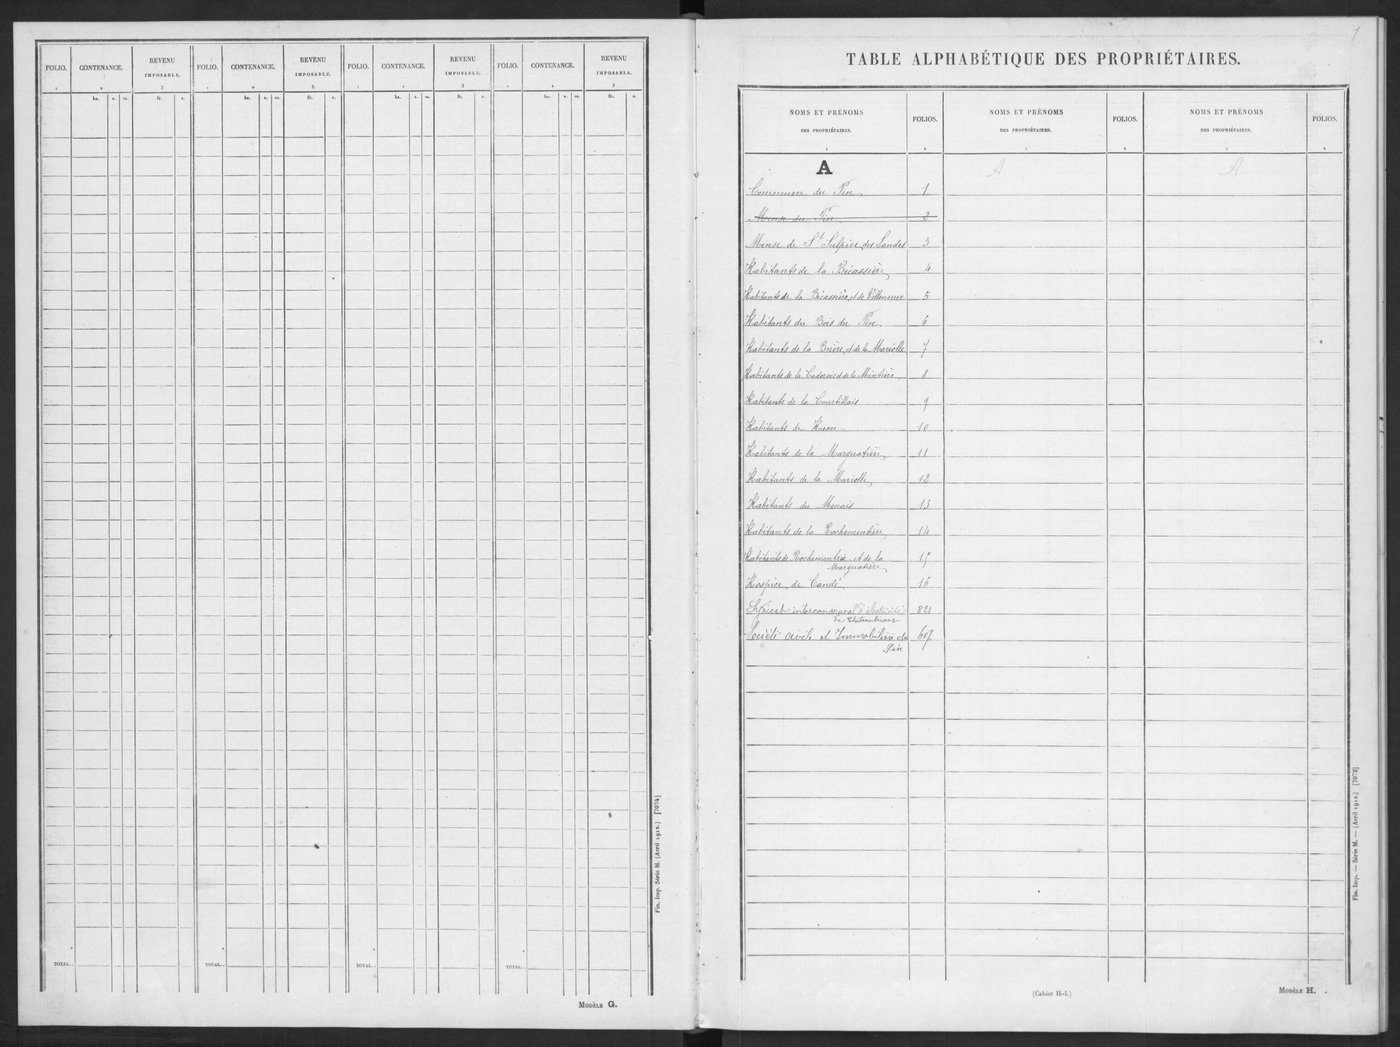 FOLIO. CONTENANCE. REVENU IMPOSABLE. FOLIO. CONTENANCE. REVENU IMPOSABLE. FOLIO. CONTENANCE. REVENU IMPOSABLE. FOLIO. CONTENANCE. REVENU IMPOSABLE.
1 2 3 1 2 3 1 2 3 1 2 3
ha. a. ca. fr. c. ha. a. ca. fr. c. ha. a. ca. fr. c. ha. a. ca. fr. c.
TOTAL. TOTAL. TOTAL. TOTAL.
Fin. Imp. Série M. (Avril 1912.) [7074]
MODÈLE G.
1
TABLE ALPHABÉTIQUE DES PROPRIÉTAIRES.
NOMS ET PRÉNOMS DES PROPRIÉTAIRES. FOLIOS. NOMS ET PRÉNOMS DES PROPRIÉTAIRES. FOLIOS. NOMS ET PRÉNOMS DES PROPRIÉTAIRES. FOLIOS.
1 2 1 2 1 2
A A A
Commune du Pin 1
Mense du Pin 2
Mense de St Sulpice des Landes 3
Habitants de la Bécassière 4
Habitants de la Bécassière et de Villeneuve 5
Habitants du Bois du Pin 6
Habitants de la Brière et de la Mariolle 7
Habitants de la et de la Mintière 8
Habitants de la Courtillais 9
Habitants de Huon 10
Habitants de la Marquatière 11
Habitants de la Mariolle 12
Habitants du Menais 13
Habitants de la Rochementière 14
Habitants de Rochementrie et de la
Marquatière 15
Hospice de Candé 16
Syndicat intercommunal d'électricité
de Chateaubriant 821
Société civile et Immobilière du
Pin 607
(Cahier H-I.)
MODÈLE H.
Fin. Imp. — Série M. — (Avril 1912.) [7072]